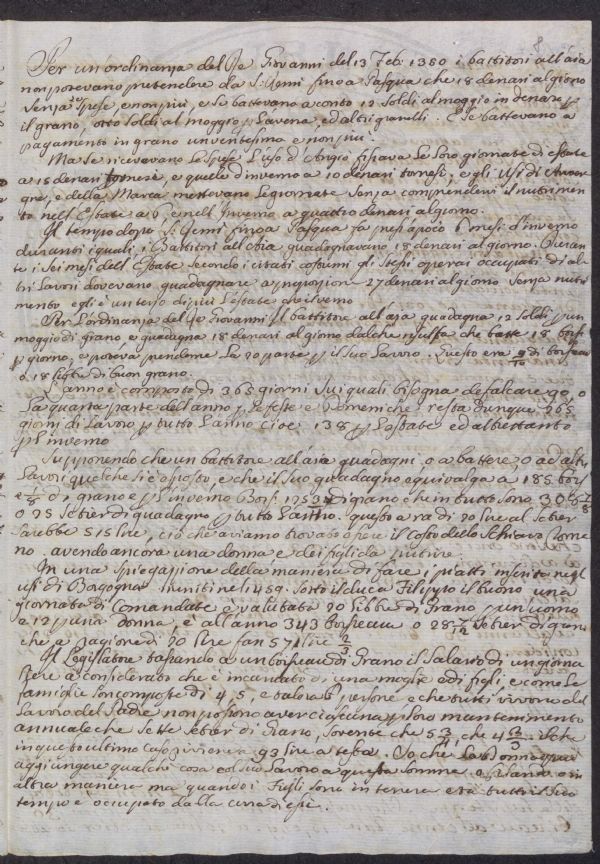 8
Per un'ordinanza del Re Giovanni del 13 Feb: 1350 i battitori all'aia
non potevano pretendere da S: Remi fino a Pasqua che 18 denari al giorno
senza spese, e non più, e se battevano a conto 12 soldi al moggio in denaro p
il grano, otto soldi al moggio p l'avena, ed altri granelli. E se battevano a
pagamento in grano un ventesimo e non più.
Ma se ricevevano le spese l'uso d'Angiò fissava le loro giornate di estate
a 15 denari tornesi, e quelle d'inverno a 10 denari tornesi, e gli usi di
e della Marca mettevano le giornate senza comprendervi il nutrimen
to nell'Estate a 6, e nell'Inverno a quattro denari al giorno.
Il tempo dopo S: Remi fino a Pasqua fa press'apoco 6 mesi d'inverno
duranti i quali, i Battitori all'Aia guadagnavano 18 denari al giorno. Duran
te i sei mesi dell'Estate secondo i citati costumi gli stessi operai occupati di al
tri lavori dovevano guadagnare a proporzione 27 denari al giorno senza nutri
mento egli è un terso di più l'estate che l'inverno
Per l'ordinanza del Re Giovanni il battitore all'aia guadagna 12 soldi p un
moggio di grano, e guadagna 18 denari al giorno dal che risulta che batte 18
p giorno, e poteva prenderne la 20 parte p il suo lavoro. Questo era 9/10 di
o 18 libbre di buon grano.
L'anno è composto di 365 giorni sui quali bisogna defalcare 90, o
la quarta parte dell'anno p le feste e Domeniche, resta dunque 265
giorni di lavoro p tutto l'anno cioè 138 p l'estate ed altrettanto
p l'inverno
Supponendo che un battitore all'aia guadagni, o a battere, o ad altri
lavori quel che si è esposto, e che il suo guadagno equivalga a 185
di grano e p l'inverno di grano che in tutto sono
o 25 Setier di guadagno p tutto l'anno. questo a ra di 20 lire al Setier
sarebbe 515 lire, ciò che aviamo trovato essere il costo dello Schiavo Roma
no. avendo ancora una donna e dei figli da nutrire.
In una spiegazione della maniera di fare i piatti inserita negl
usi di Borgogna riuniti nel 1459. sotto il duca Filippo il buono una
giornata di Comandate è valutata 20 libbre di grano p un uomo
e 12 p una donna, e all'anno 343 o 28 7/12 Setier di grano
che a ragione di 20 lire fan 571 lire 2/3
Il Legislatore tassando a un di Grano il salario di un giorna
liere à considerato che è incaricato di una moglie e di figli, e come le
famiglie son composte di 4, 5, e talora 6 persone e che tutti vivono del
lavoro del Padre non possono aver ciascuna p loro mantenimento
annuale che sette setier di Grano, sovente che 5 3/4, che 4
in quest'ultimo caso 93 lire a testa. Va che la Donna può
aggiungere qualche cosa col suo lavoro a questa somma, o filando o in
altra maniera ma quando i figli sono in tenera età tutto il suo
tempo è occupato dalla cura di essi.